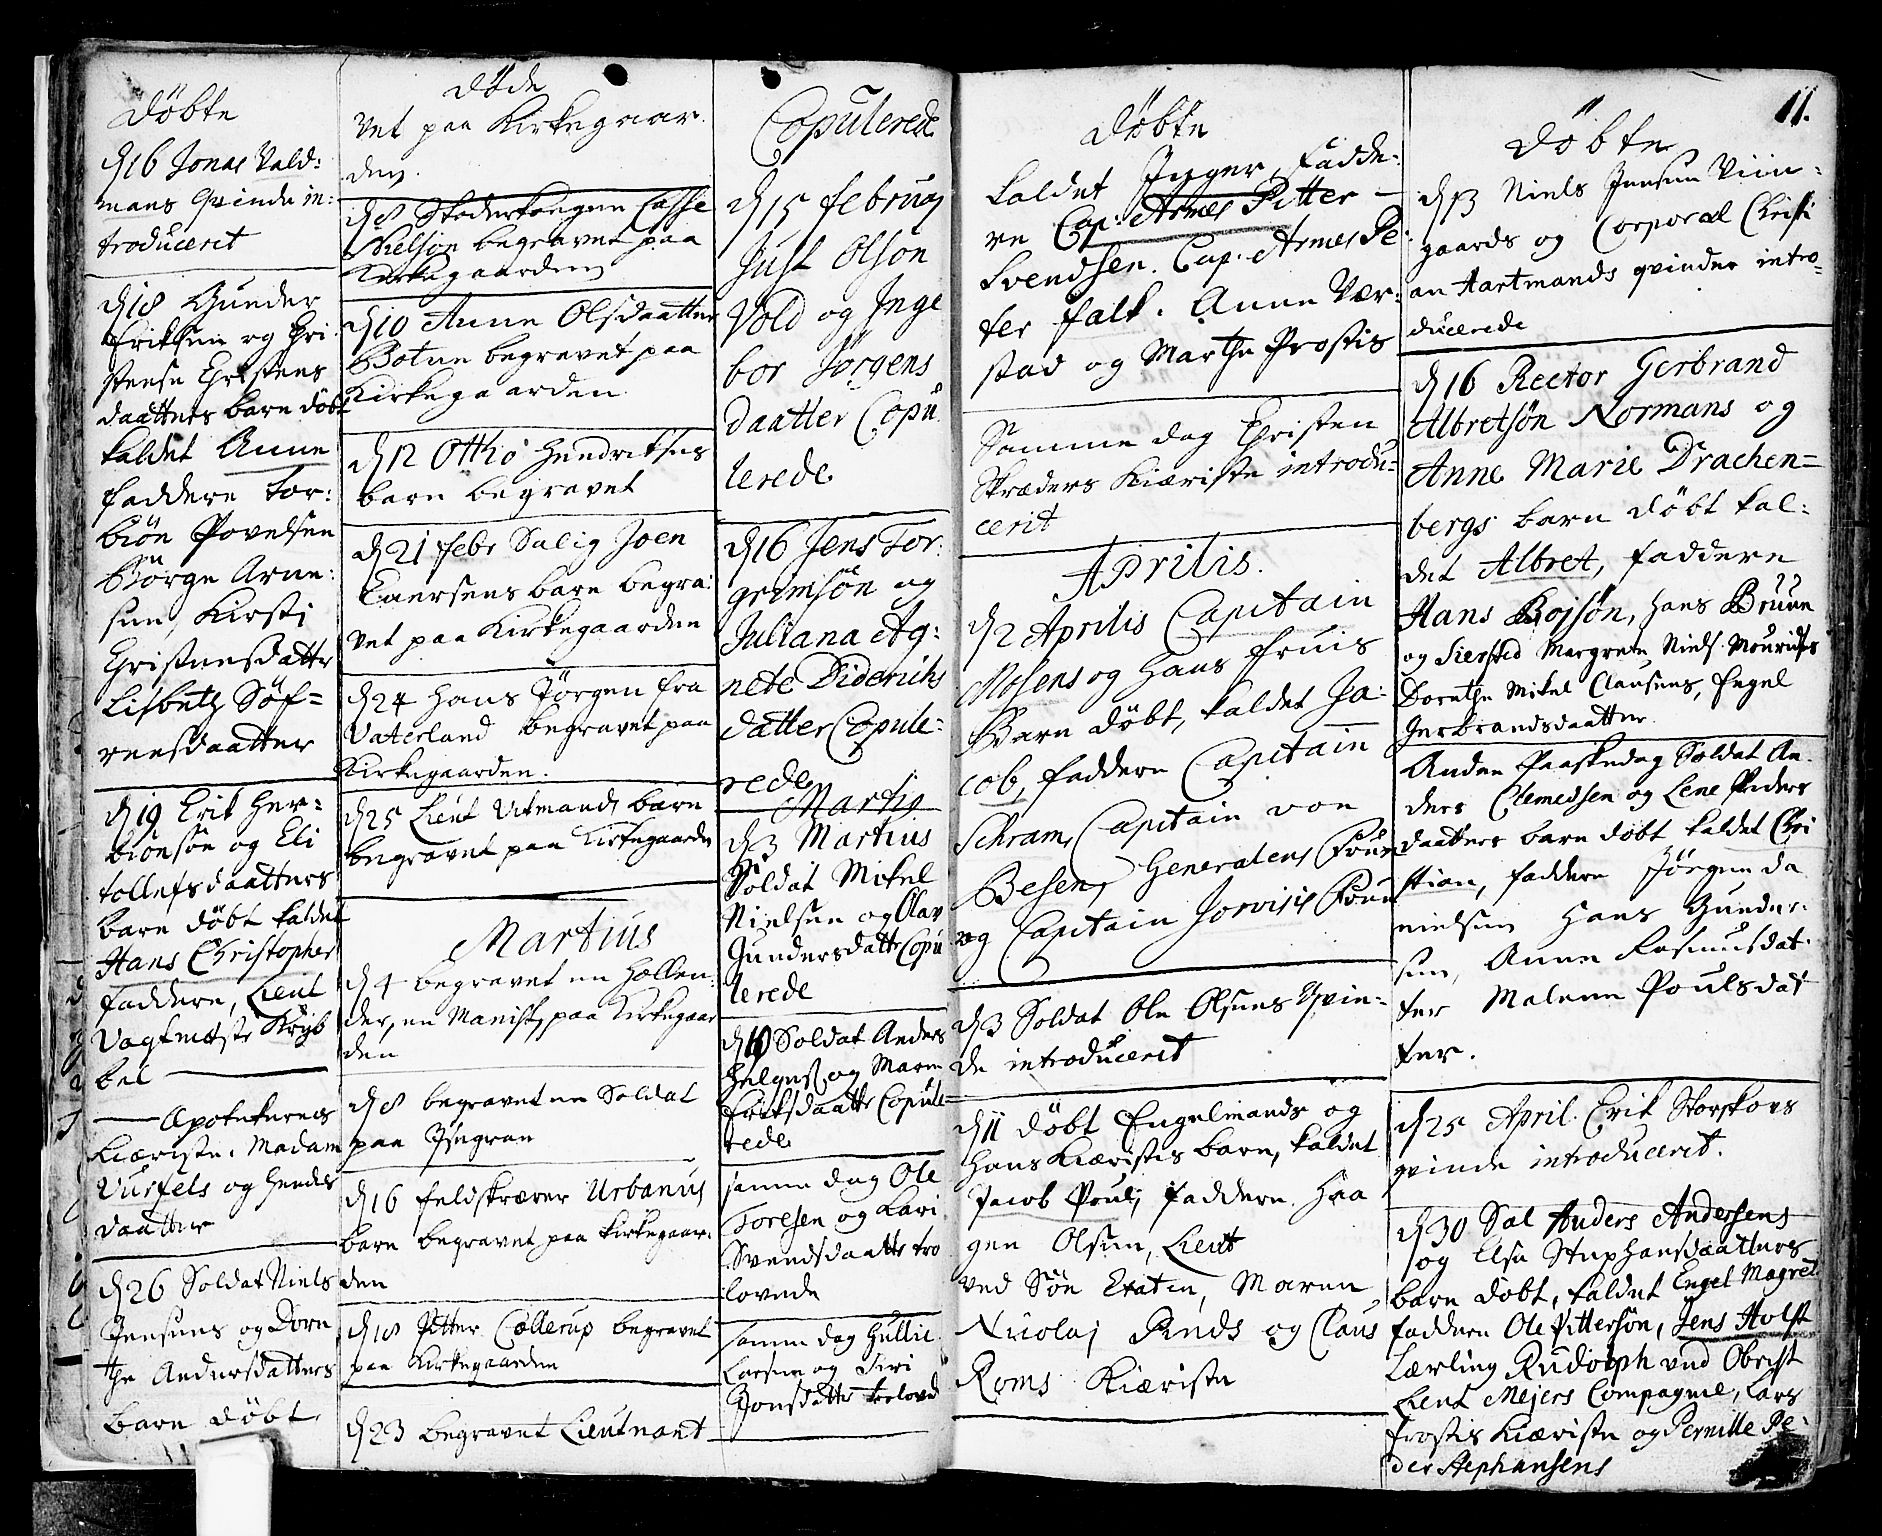 Döbte
d 16 Jonas Vald:
mans Qvinde in:
troducerit
d 18 Gunder
Eriksen og Chri
stense Christens
daatters barn döbt
kaldet Anne
faddere Tor:
biön Povelsen
Börge Arne:
sen, Kirsti
Christensdatter
Lisbeth Söf=
rensdaatter
d 19 Erik Her=
biönsön og Eli
tollefsdaatters
barn döbt kaldet
Hans Christopher
faddere, Lieut
Vagtmester Kryb
bel
Apotekerens
Kiæriste. Madam
Vurfels og hendes
daatter
d 26 Soldat Niels
Jensens og Dore
the Andersdatters
barn döbt,
Döde
vet paa Kirkegaar
den
d 8 Skoderkongen Lasse
Nielsön begravet paa
Kirkegaarden
d 10 Anne Olsdaatter
Botne begravet paa
Kirkegaarden
d 12 Otthö Hendriksens
barn begravet
d 21 febr Salig Joen
Enersens barn begra:
vet paa Kirkegaarden
d 24 Hans Jörgen fra
Vaterland begravet paa
Kirkegaarden.
d 25 Lieut Vitmands barn
begravet paa Kirkegaarden
Martius
d 4 begravet en Hollen
der, en Manist, paa Kirkegaar
den
d 8 begravet en Soldat
paa Isegran
d 16 feldskrærer Urbanus
barn begravet paa Kirkegaar:
den
d 18 Petter Collerup begravet
paa Kirkegaarden
d 23 begravet Lieutnant
Copulerede
d 15 februarij
Just Olson
Vold og Inge
bor Jörgens
daatter Copu
lerede
d 16 Jens Tor:
gremsön og
Juliana Ag:
nete Diderichs
datter Copule:
rede
Martij
d 3 Martius
Soldat Mikel
Nielsen og Olav
Gundersdatter Copu
lerede
d 10 Soldat Anders
Helgesß og Maren
Eriksdaatter Copule=
rede
samme dag Ole
Toresen og Kari
Svendsdaatter tro
lovede
samme dag Gullic
Larsen og Siri
Jonsdatter trolovd
Döbte
kaldet Inger, fadde:
re Cap: Armes Pitter
Svendsen. Cap: Armes Pe
ter falk. Anne Vær:
stad og Marthe Prostis
Samme dag Christen
Skræders Kiæriste introdu=
cerit
Aprilis.
d 2 Aprilis Capitain
Mosens og Hans Fruis
Barn döbt, kaldet Ja:
cob, faddere Capitain
Schram, Capitain von
Besen, Generalens Frue
og Capitain Jorvisis Frue
d 3 Soldat Ole Olsens Qvin=
de introducerit
d 11 döbt Engelmands og
hans Kiæristis barn, kaldet
Jacob Poul, faddere Haa
gen Olsen, Lieut
ved Söe Etaten, Maren
Nicolaj Reeds og Claus
Roms Kiæriste
11.
Döbte
d 13 Niels Jensen Viin=
gaards og Corporal Christi
an Hartmands qvinder intro=
ducerede
d 16 Rector Gerbrand
Albretsön Normans og
Anne Marie Drachen=
bergs barn döbt kal:
det Albret, faddere
Hans Bojsön, Hans Bruun
og Siersted Margrete Niels Mouridses
Dorethe Mikel Clausens, Engel
Gerbrandsdaatter
Anden Paaskedag Soldat An
ders Clemedsen og Lene Peders
daatters barn döbt kaldet Chri
stian, faddere Jörgen Da
nielsen Hans Gunder:
sen, Anne Rasmusdat
ter Malene Poulsdat
ter.
d 25 April. Erik Storskovs
qvinde introducerit.
d 30 Sal Anders Andersens
og Else Stephansdaatters
barn döbt, kaldet Engel Magret
faddere Ole Pittersön, Jens Holst
Lærling Rudolph ved Obrist
Lieut Mejers Compagnie, Lars
Frostis Kiæriste og Pernille Pe:
der Stephansens